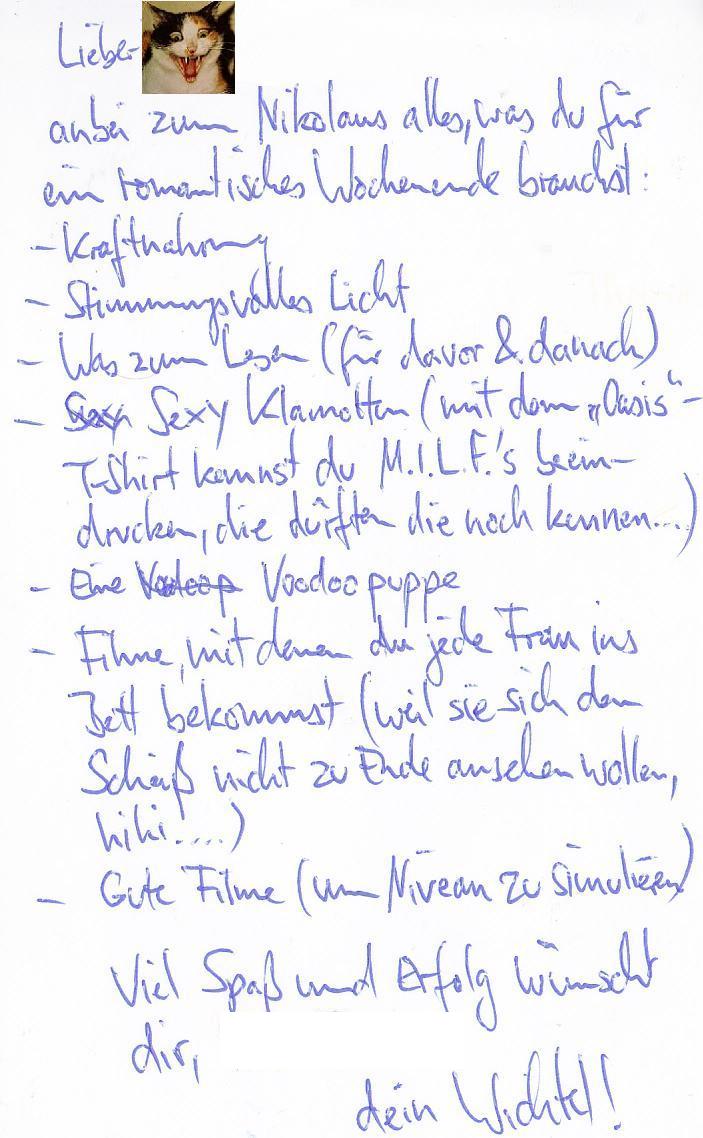 Lieber
anbei zum Nikolaus alles, was du für
ein romantisches Wochenende brauchst:
- Kraftnahrung
- Stimmungsvolles Licht
- Was zum Lesen (für davor & danach)
- Sexy Sexy Klamotten (mit dem „Oasis"-
T-Shirt kannst du M.I.L.F.'s beein-
drucken, die dürften die noch kennen...)
- Eine Voodoop Voodoopuppe
- Filme, mit denen du jede Frau ins
Bett bekommst (weil sie sich den
Scheiß nicht zu Ende ansehen wollen,
hihi!....)
- Gute Filme (um Niveau zu simulieren)
Viel Spaß und Erfolg wünscht
dir,
dein Wichtel!